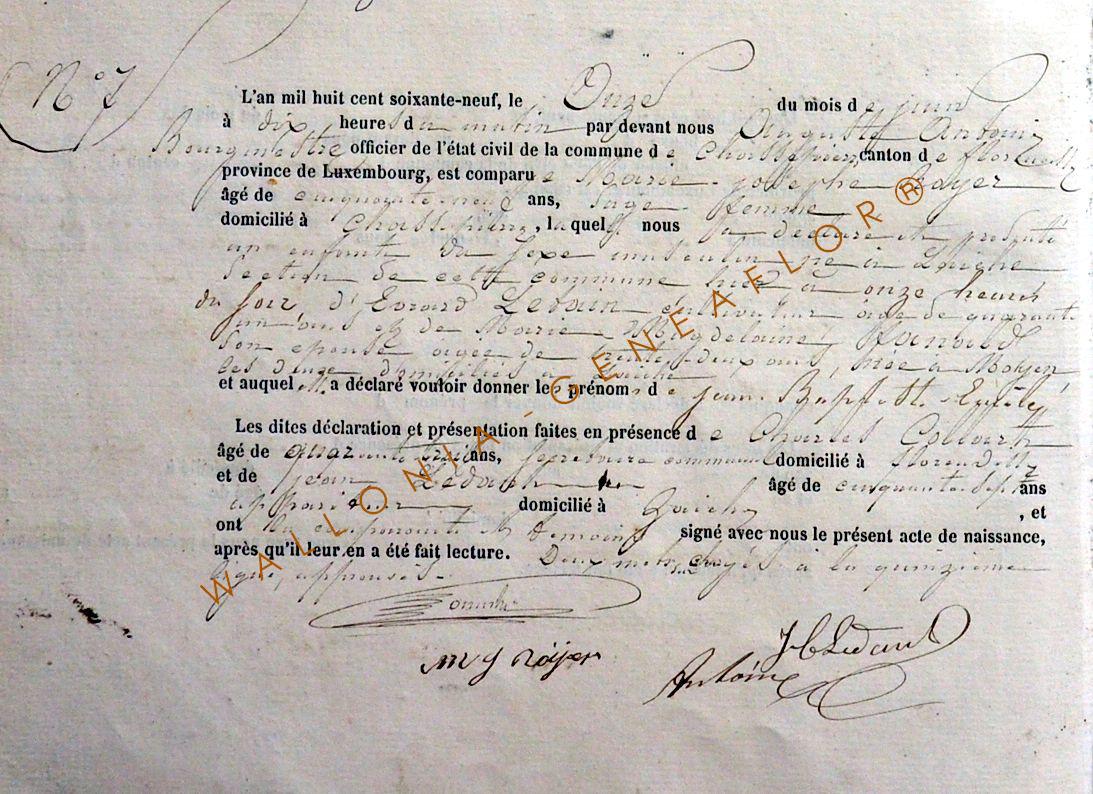 N° 7
L'an mil huit cent soixante-neuf, le Onze du mois de juin
à dix heures du matin par devant nous Auguste Antoine
Bourgmestre officier de l'état civil de la commune de Chassepierre, canton de Florenville
province de Luxembourg, est comparue Marie-josephe Rayer
âgé de cinquante neuf ans, sage femme
domicilié à Chassepierre, laquelle nous a déclaré et présenté
un enfant du sexe masculin né à Laiche
section de cette commune hier à onze heures
du soir, d'Evrard Ledain cultivateur âgé de quarante
un ans et de Marie-Magdelaine
son épouse agée de trente-deux ans, née à Moyen,
les deux domiciliés à Laiche
et auquel elle a déclaré vouloir donner les prénoms de jean-Baptiste
Les dites déclaration et présentation faites en présence de Charles
âgé de quarante trois ans, secrétaire communal domicilié à Florenville
et de jean Ledain âgé de cinquante sept ans
domicilié à Laiche, et
ont la comparante et témoins signé avec nous le présent acte de naissance,
après qu'il leur en a été fait lecture. Deux mots rayés à la quinzième
ligne, approuvés.
m j Rayer
J Ledain
Antoine
WALLONIA-GENEAFLOR®